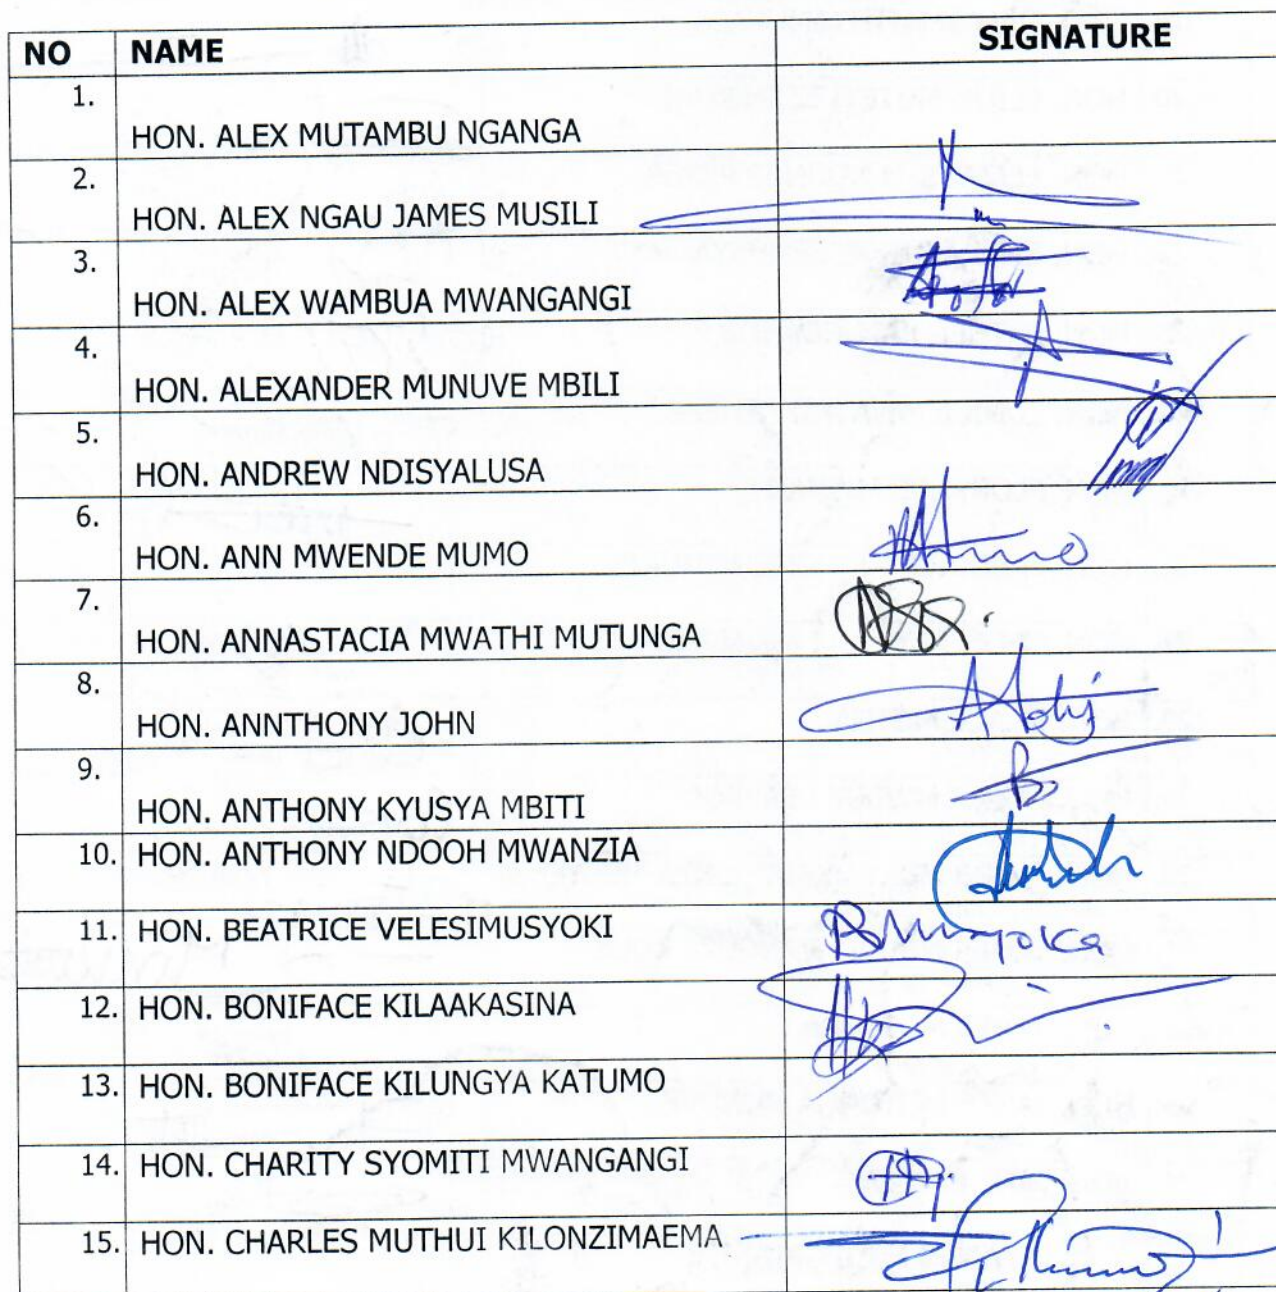 NO NAME SIGNATURE
1. HON. ALEX MUTAMBU NGANGA
2. HON. ALEX NGAU JAMES MUSILI
3. HON. ALEX WAMBUA MWANGANGI
4. HON. ALEXANDER MUNUVE MBILI
5. HON. ANDREW NDISYALUSA
6. HON. ANN MWENDE MUMO
7. HON. ANNASTACIA MWATHI MUTUNGA
8. HON. ANNTHONY JOHN
9. HON. ANTHONY KYUSYA MBITI
10. HON. ANTHONY NDOOH MWANZIA
11. HON. BEATRICE VELESIMUSYOKI
12. HON. BONIFACE KILAAKASINA
13. HON. BONIFACE KILUNGYA KATUMO
14. HON. CHARITY SYOMITI MWANGANGI
15. HON. CHARLES MUTHUI KILONZIMAEMA